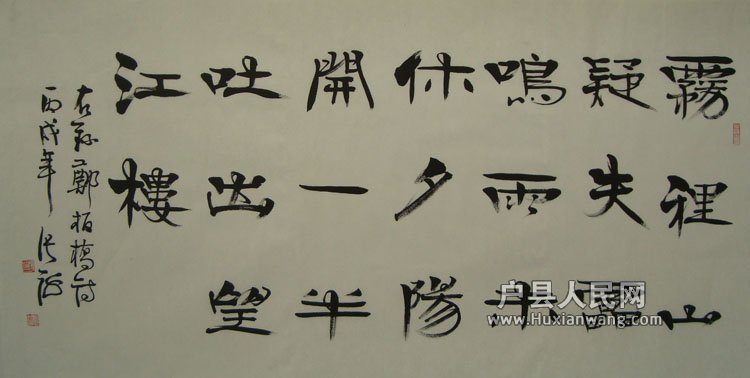 霧裡山
疑失靁
鳴雨未
休夕陽
開一半
吐出望
江樓
右錄鄭板橋詩
丙戌年
户县人民网
www.Huxianwang.com